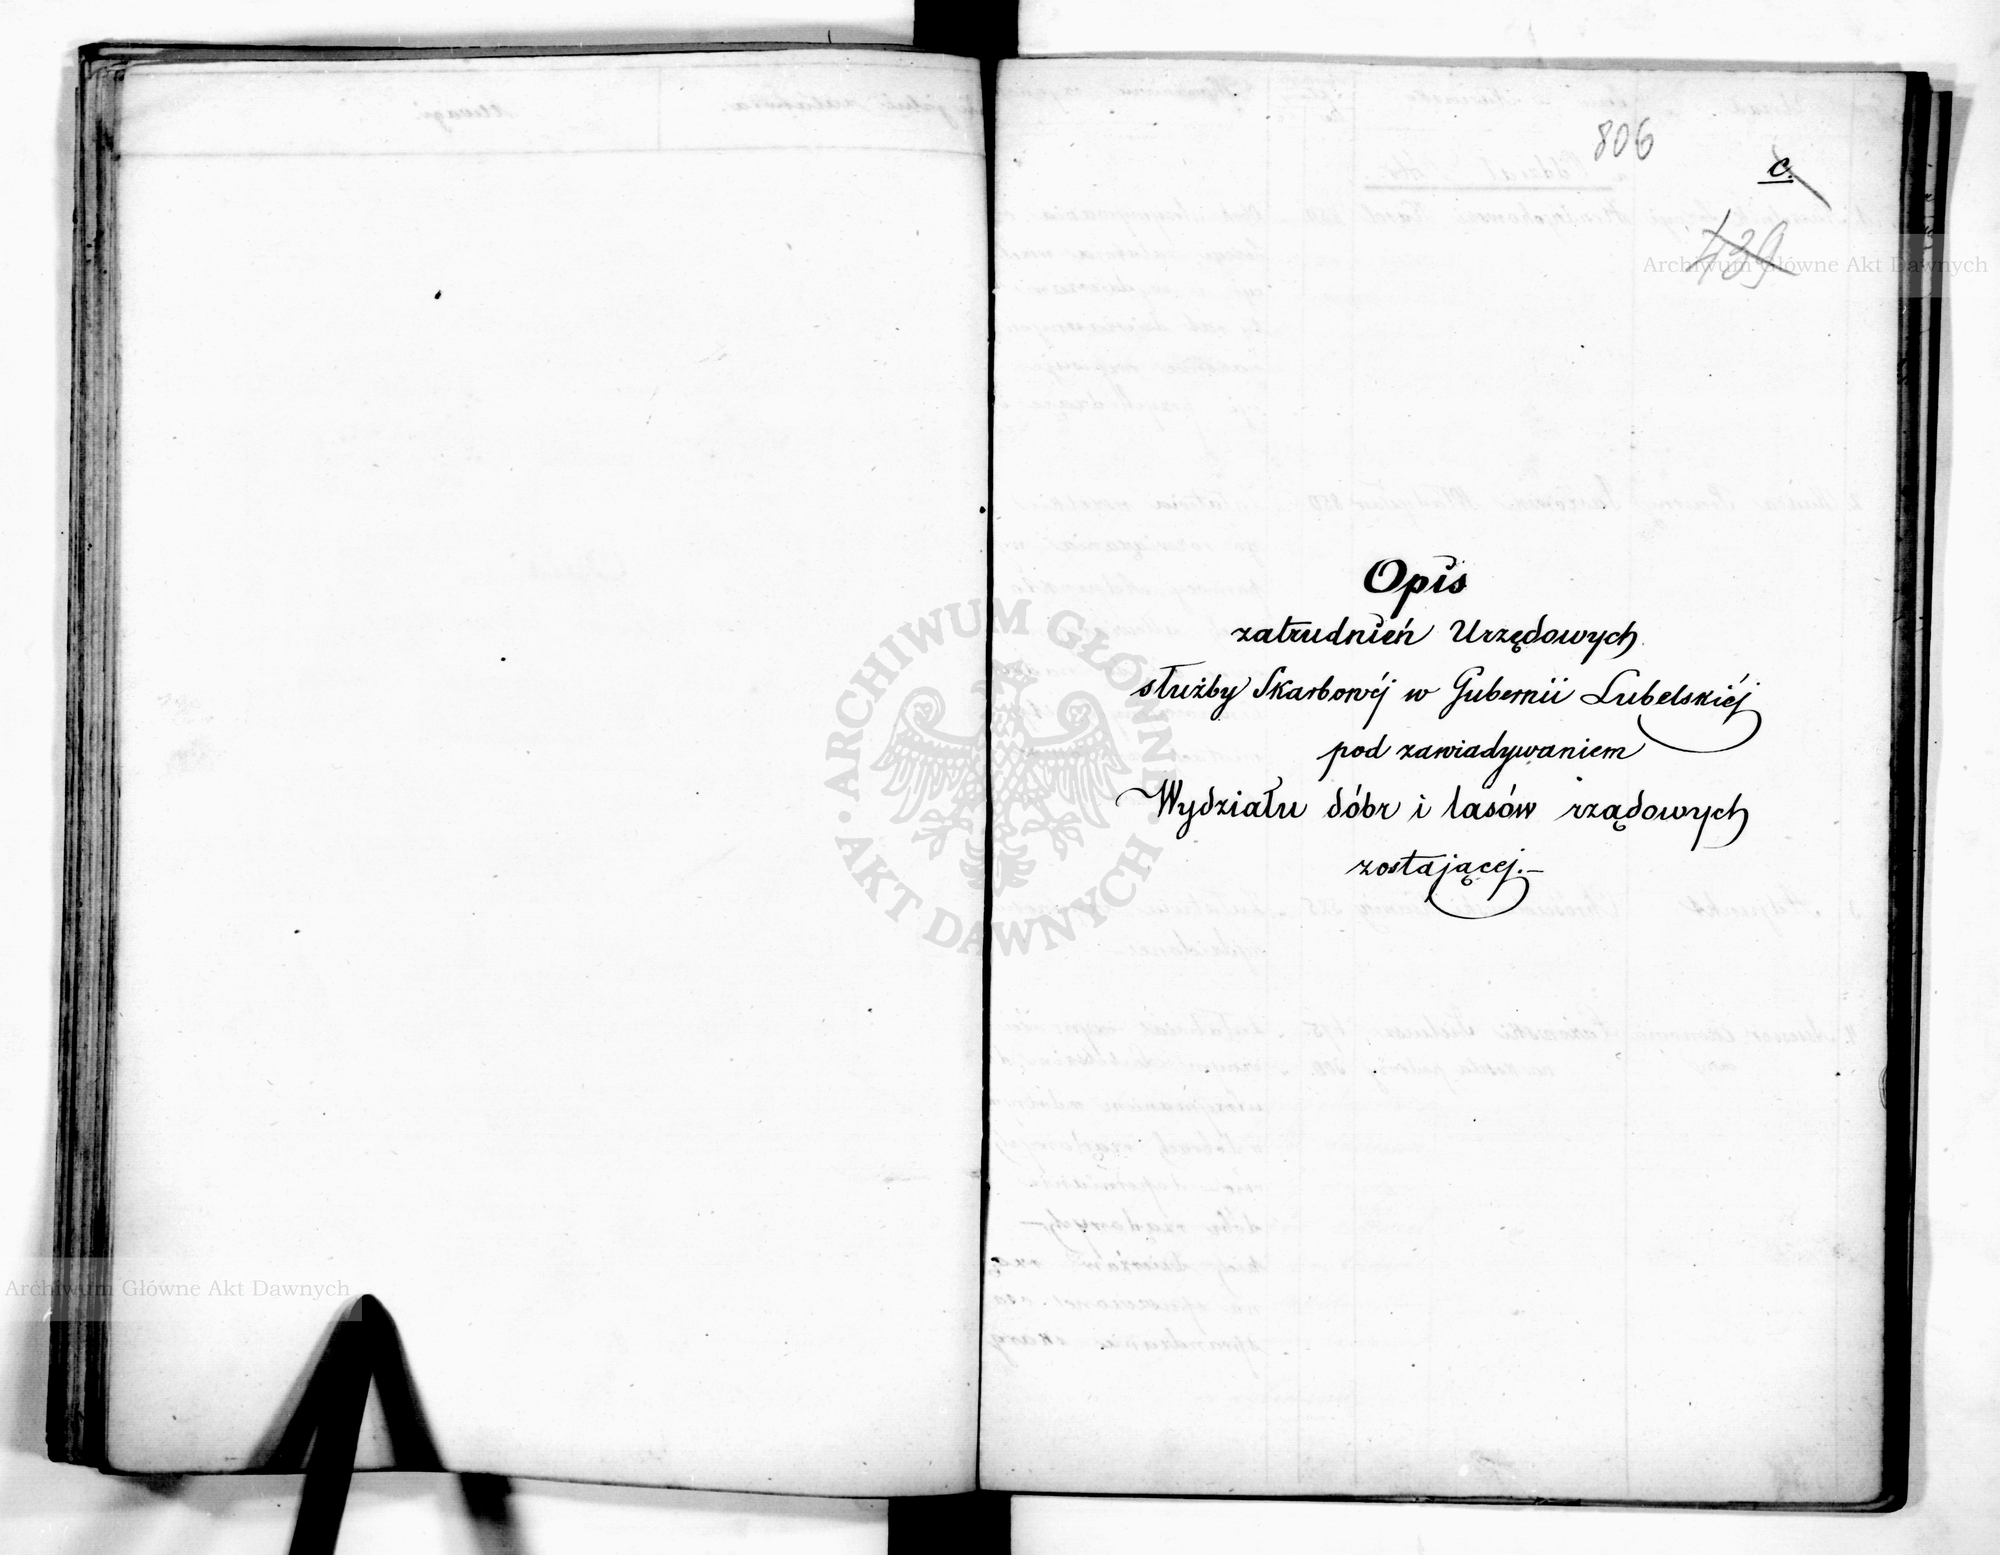 806
c.
439
Opis
zatrudnień Urzędowych
służby Skarbowéj w Gubernii Lubelskiéj
pod zawiadywaniem
Wydziału dóbr i lasów rządowych
zostającej.—
Archiwum Główne Akt Dawnych
ARCHIWUM GŁÓWNE AKT DAWNYCH
Archiwum Główne Akt Dawnych